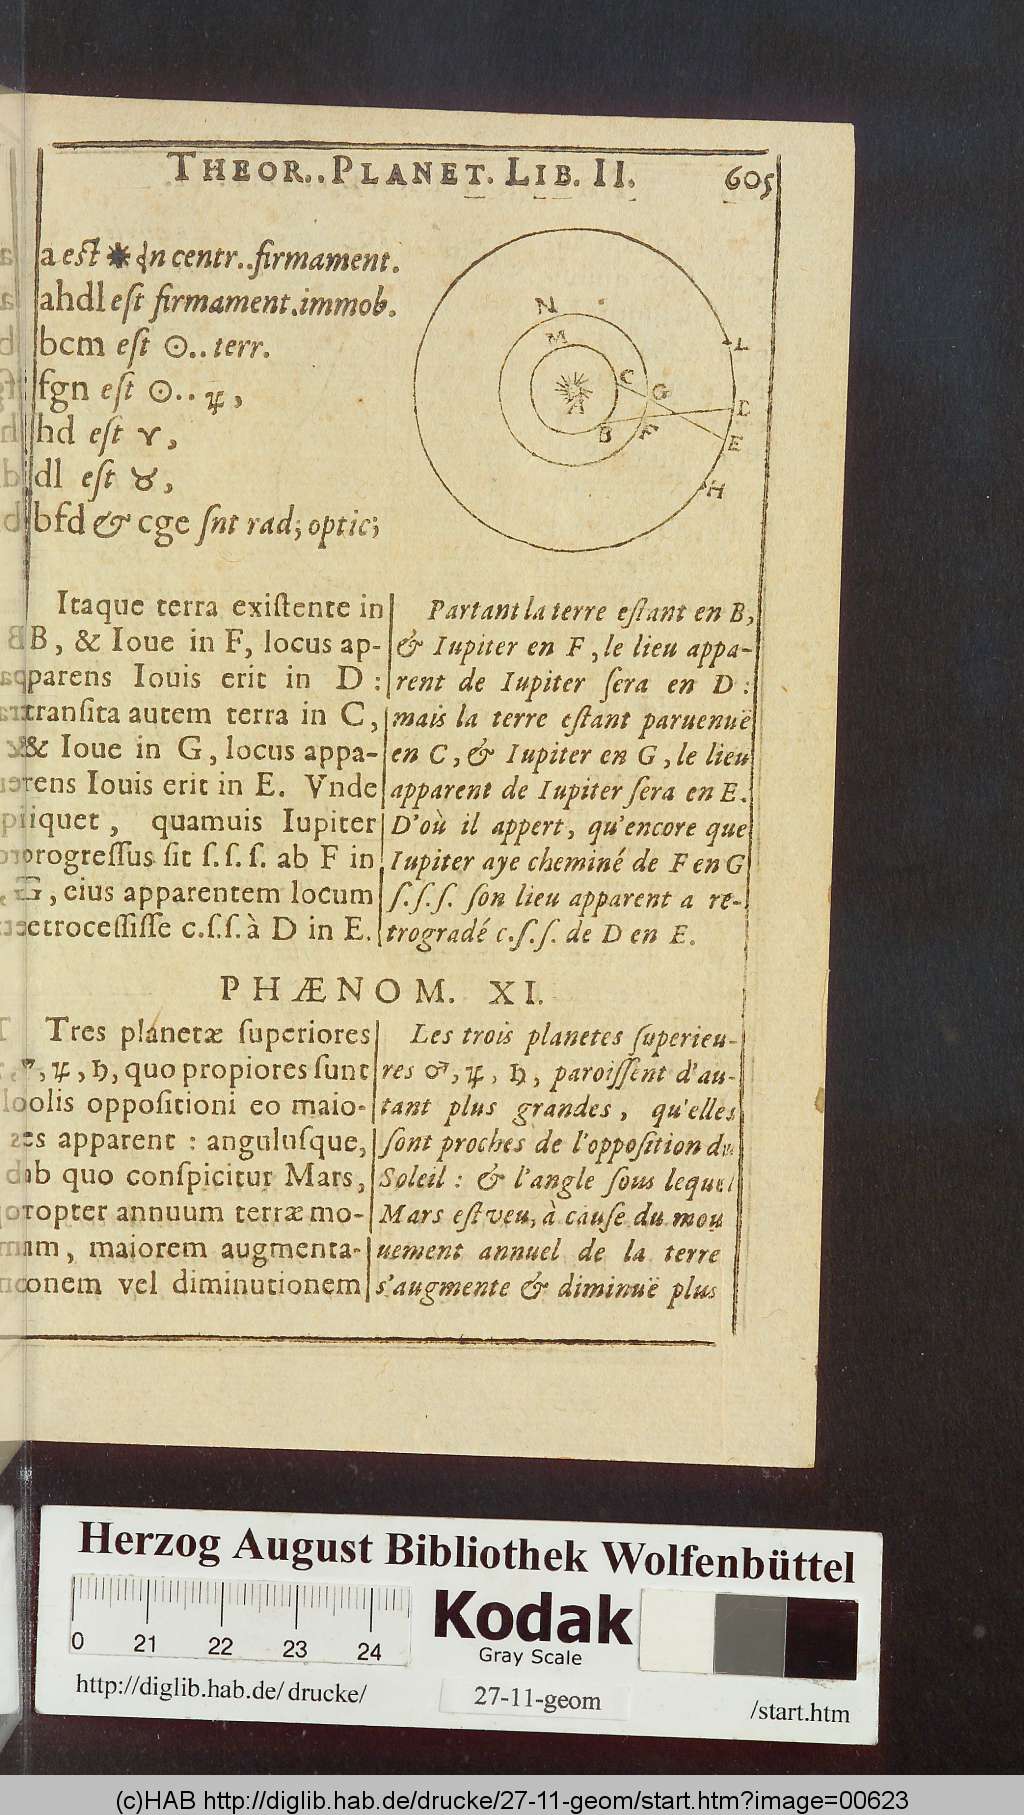 THEOR..PLANET. LIB. II. 605
a est ☀ in centr..firmament.
ahdl eſt firmament.immob.
bcm eſt ☉..terr.
fgn eſt ☉..♃,
hd eſt ♈,
dl eſt ♉,
bfd & cge ſnt rad; optic;
N
M
L
C
G
A
D
B
F
E
H
Itaque terra exiſtente in
B, & Ioue in F, locus ap-
parens Iouis erit in D :
tranſita autem terra in C,
& Ioue in G, locus appa-
rens Iouis erit in E. Vnde
liquet, quamuis Iupiter
progreſſus ſit ſ. ſ. ſ. ab F in
G, eius apparentem locum
retroceſſiſſe c.ſ.ſ. à D in E.
Partant la terre eſtant en B,
& Iupiter en F, le lieu appa-
rent de Iupiter ſera en D :
mais la terre eſtant paruenuë
en C, & Iupiter en G, le lieu
apparent de Iupiter ſera en E.
D'où il appert, qu'encore que
Iupiter aye cheminé de F en G
ſ.ſ.ſ. ſon lieu apparent a re-
trogradé c.ſ.ſ. de D en E.
PHÆNOM. XI.
Tres planetæ ſuperiores
♂, ♃, ♄, quo propiores ſunt
ſolis oppoſitioni eo maio-
res apparent : anguluſque,
ſub quo conſpicitur Mars,
propter annuum terræ mo-
tum, maiorem augmenta-
tionem vel diminutionem
Les trois planetes ſuperieu-
res ♂, ♃, ♄, paroiſſent d'au-
tant plus grandes, qu'elles
ſont proches de l'oppoſition du
Soleil : & l'angle ſous lequel
Mars eſt veu, à cauſe du mou
uement annuel de la terre
s'augmente & diminuë plus
Herzog August Bibliothek Wolfenbüttel
0 21 22 23 24
Kodak
Gray Scale
http://diglib.hab.de/drucke/ 27-11-geom /start.htm
(c)HAB http://diglib.hab.de/drucke/27-11-geom/start.htm?image=00623